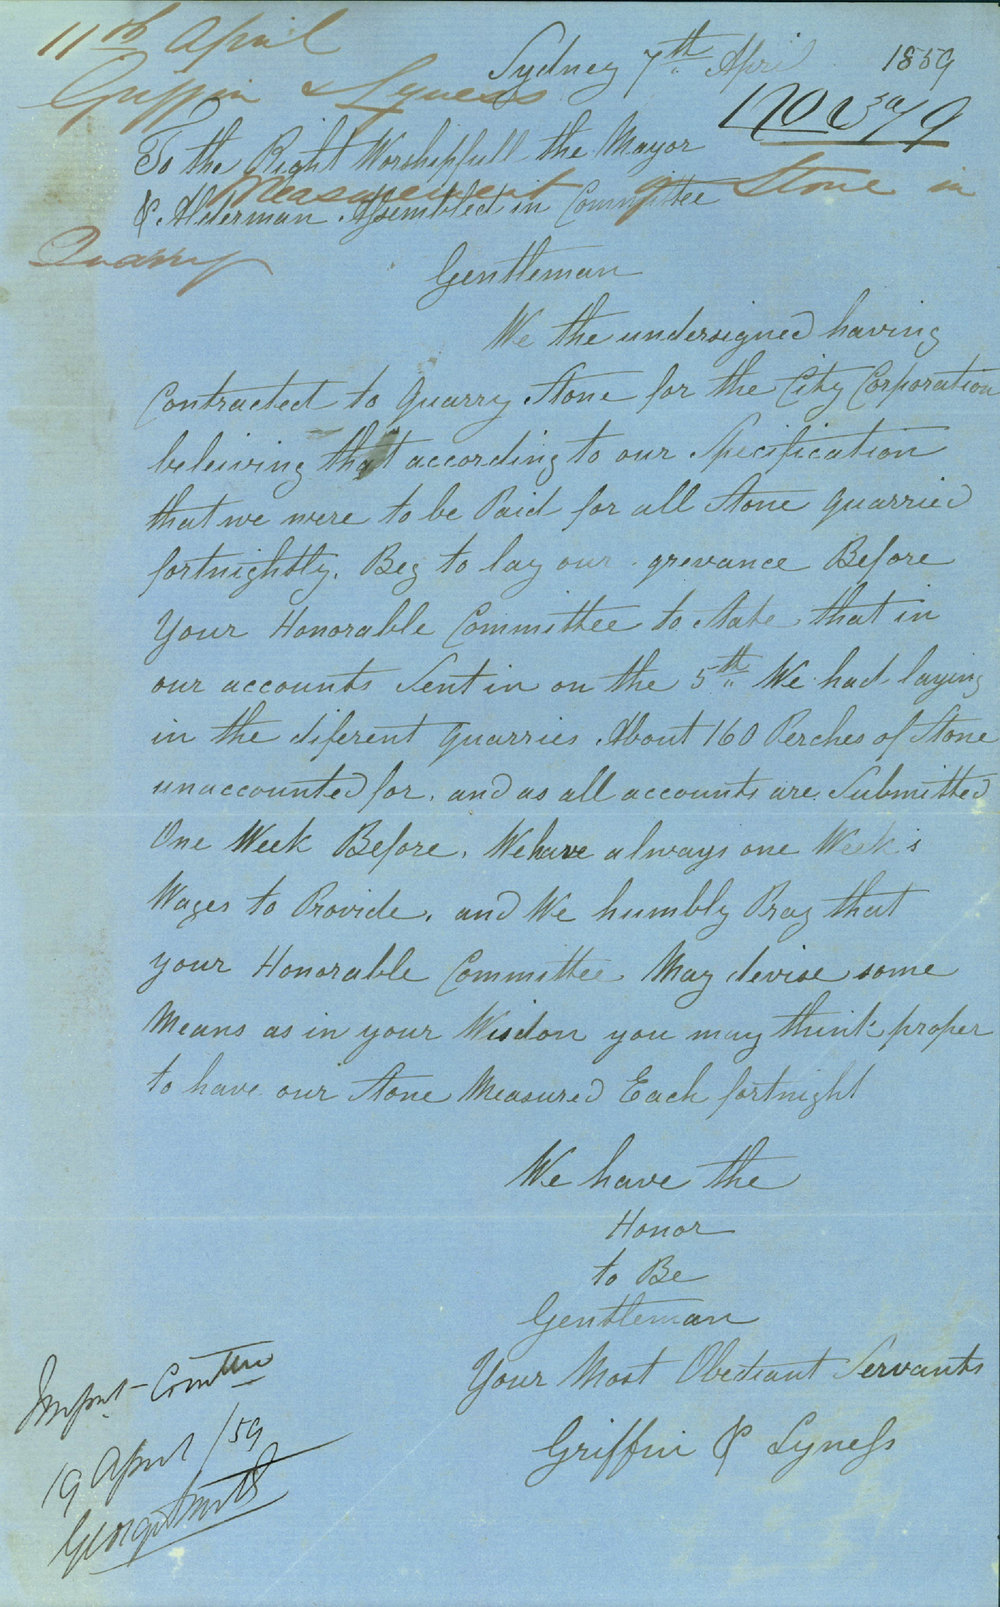 11th April
Griffin & Lyness
Sydney 7th April 1859
No 379
To the Right Worshipfull the Mayor
Measurement of Stone in
& Alderman Assembled in Committee
Quarry
Gentleman
We the undersigned having
Contracted to Quarry Stone for the City Corporation
beleiving that according to our Specification
that we were to be Paid for all Stone quarried
fortnightly. Beg to lay our grevance Before
Your Honorable Committee to State that in
our accounts Sent in on the 5th We had laying
in the diferent quarries About 160 Perches of Stone
unaccounted for. and as all accounts are Submitted
One Week Before. We have always one Week's
Wages to Provide. and We humbly Pray that
your Honorable Committee May devise some
Means as in your Wisdon you may think proper
to have our Stone Measured Each fortnight
We have the
Honor
to Be
Gentleman
Your Most Obediant Servants
Griffin & Lyness
Impt Comttee
19 April /59
George Smith